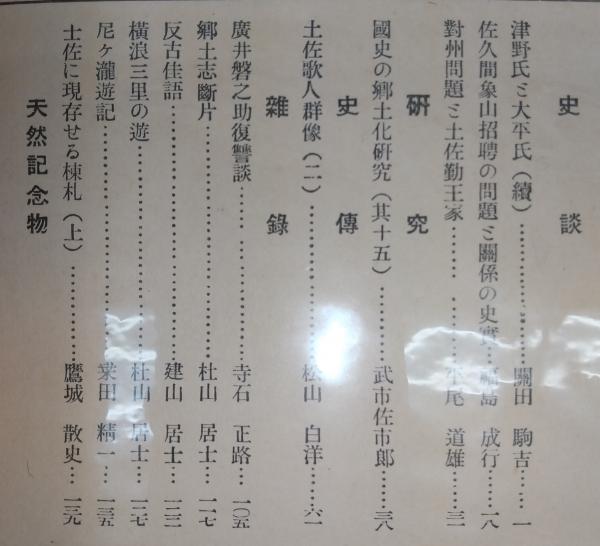 史談
津野氏ミ大平氏(續)……………關田 駒吉……一
佐久間象山招聘の問題ミ關係の史實…福島 成行……一八
對州問題ミ土佐勤王家……………平尾 道雄……三一
研究
國史の郷土化研究(其十五)……………武市佐市郎……三八
史傳
土佐歌人群像(二)……………松山 白洋……六一
雜錄
廣井磐之助復讐談……………寺石 正路……一〇五
郷土志斷片……………杜山 居士……一一七
反古佳語……………建山 居士……一二二
橫浪三里の遊……………杜山 居士……一二七
尼ヶ瀧遊記……………業田 精一……一三五
土佐に現存せる棟札(上)……………鷹城 散史……一三九
天然記念物